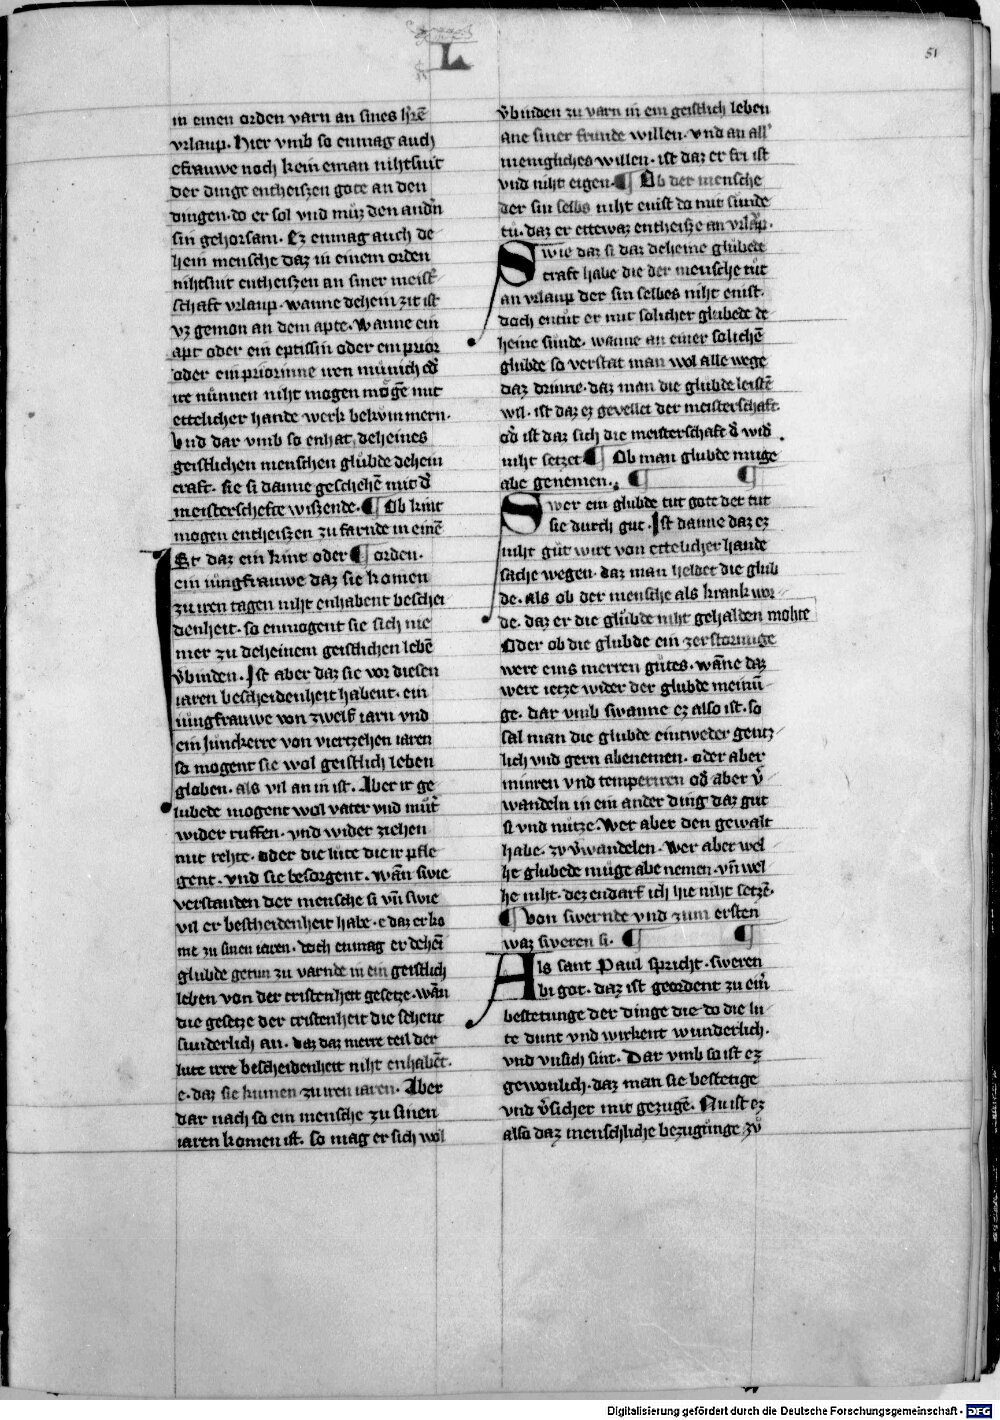 L
51
in einen orden varn an sines h̓rē
vrlaup. Hier vmb so enmag auch
efrauwe noch kein eman nihtsnit
der dinge entheiszen gote an den
dingen. do er sol vnd mu̓z den and̓n
sin gehorsam. Ez enmag auch de
hein mensche daz in einem orden
nihtsnit entheiszen an siner meist̓
schaft vrlaup. wanne dehein zit ist
vz gemon an dem apte. Wanne ein
apt oder ein eptissin oder ein prior
oder ein priorinne iren mu̓nich od̓
ire nu̓nnen niht mogen mo̓gē mit
ettelicher hande werk bekv̓mmern.
Vnd dar vmb so enhat deheines
geistlichen menschen glu̓bde dehein
craft. sie si danne geschehē mit d̓
meisterschefte wiszende. ¶ Ob kint
mogen entheiszen zu farnde in einē
Ist daz ein kint oder ¶ orden.
ein iu̓ngfrauwe daz sie komen
zu iren tagen niht enhabent beschei
denheit. so enmogent sie sich nie
mer zu deheinem geistlichen lebē
v̓binden. Ist aber daz sie vor diesen
iaren bescheidenheit habent. ein
iu̓ngfrauwe von zwelf iarn vnd
ein Ju̓nckerre von viertzehen iaren
so mogent sie wol geistlich leben
globen. als vil an in ist. Aber ir ge
lubede mogent wol vater vnd mu̓t̓
wider ruffen. vnd wider ziehen
mit rehte. oder die lu̓te die ir pfle
gent. vnd sie besorgent. wān swie
verstanden der mensche si vn̄ swie
vil er bescheidenheit habe. e daz er ko
me zu sinen iaren. doch enmag er dehei
glubde getun zu varnde in ein geistlich
leben von der cristenheit gesetze. wān
die gesetze der cristenheit die sehent
sunderlich an. daz daz merre teil der
lute irre bescheidenheit niht enhabēt.
e. daz sie kumen zu iren iaren. Aber
dar nach so ein mensche zu sinen
iaren komen ist. so mag er sich wol
v̓binden zu varn in ein geistlich leben
ane siner freunde willen. vnd an all̓
menigliches willen. ist daz er fri ist
vnd niht eigen. ¶ Ob der mensche
der sin selbs niht enist do mit su̓nde
tu̓. daz er ettewaz entheisze an vrlāp.
Swie daz si daz deheine glu̓bede
craft habe die der mensche tu̓t
an vrlaup der sin selbes niht enist.
doch entu̓t er mit solicher glubede de
heine su̓nde. wanne an einer solichē
glubde so verstat man wol alle wege
daz drinne. daz man die glubde leistē
wil. ist daz ez gevellet der meisterschaft.
od̓ ist daz sich die meisterschaft d̓ wid̓
niht setzet ¶ Ob man glubde muge
abe genemen. ¶ ¶
Swer ein glubde tut gott der tut
sie durch gut. Ist danne daz ez
niht gu̓t wirt von ettelicher hande
sache wegen. daz man heldet die glub
de. als ob der mensche als krank wor
de. daz er die glu̓bde niht gehalden mohte
Oder ob die glubde ein zerstorunge
were eins merren gu̓tes. wāne daz
were ietze wider der glubde meinū
ge. dar vmb swanne ez also ist. so
sal man die glubde eintweder gentz
lich vnd gern abenemen. oder aber
minren vnd temperiren od̓ aber v̓
wandeln in ein ander ding daz gut
si vnd nu̓tze. Wer aber den gewalt
habe. zu v̓wandelen. Wer aber wel
he glubede mu̓ge abe nemen. vn̄ wel
he niht. dez endarf ich hie niht setzē.
¶ Von swernde vnd zum ersten
waz sweren si. ¶ ¶
Als sant Paul spricht. sweren
bi got. daz ist geordent zu eīr
bestetunge der dinge die do die lu
te dunt vnd wirkent wunderlich.
vnd vnsich sint. Dar vmb so ist ez
gewonlich. daz man sie bestetige
vnd v̓sicher mit gezugē. Nu ist ez
also daz menschliche bezugu̓nge zu̓
Digitalisierung gefördert durch die Deutsche Forschungsgemeinschaft - DFG